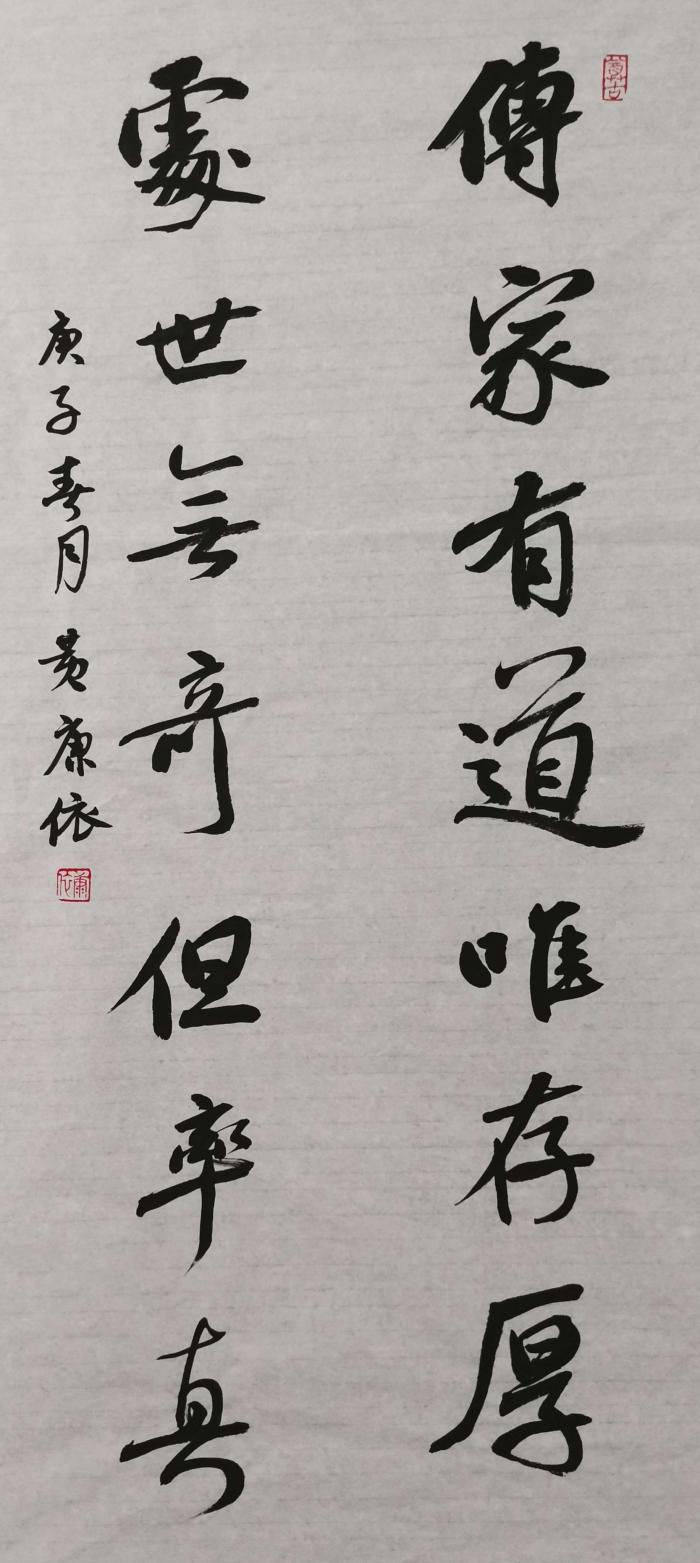 傳家有道唯存厚
處世無奇但率真
庚子春月 黄康依